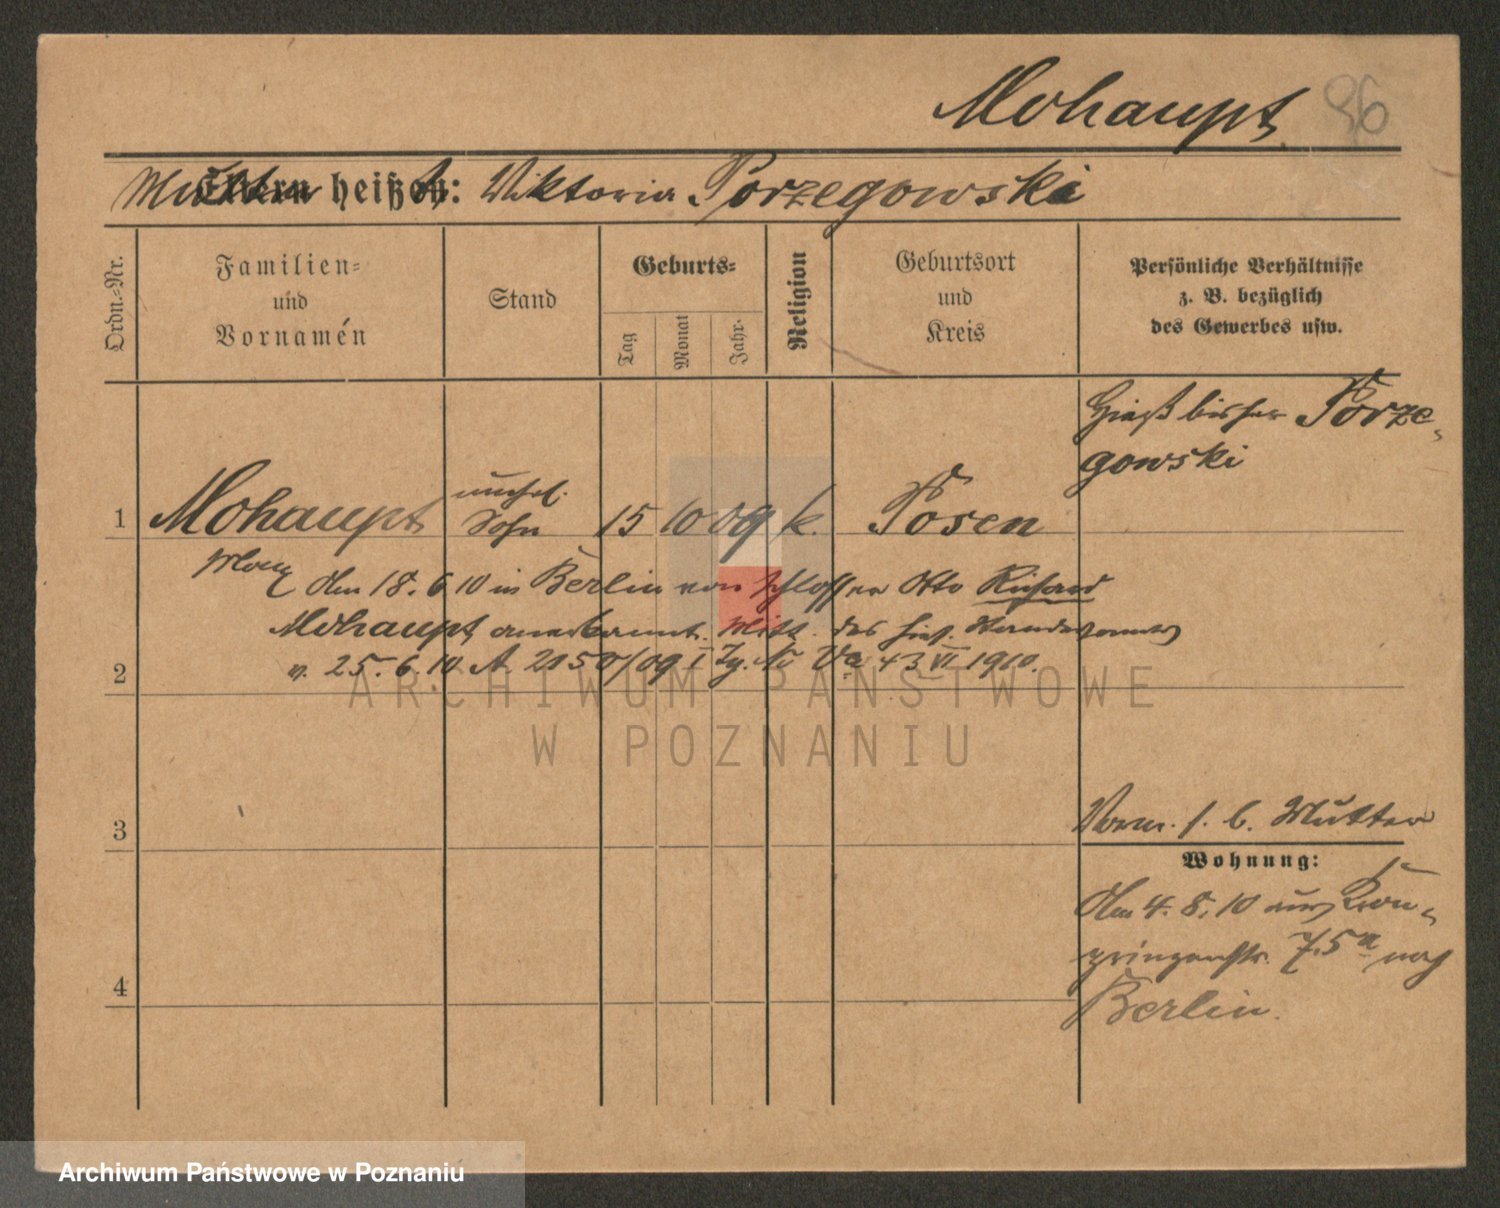 Mohaupt 96
Mutter heißt: Viktoria Porzegowski
Ordn.-Nr.
Familien-
und
Vornamen
Stand
Geburts-
Tag
Monat
Jahr.
Religion
Geburtsort
und
Kreis
Persönliche Verhältnisse
z. B. bezüglich
des Gewerbes usw.
Hieß bisher Porze-
gowski
1 Mohaupt unehel. Sohn 15 10 09 k. Posen
Max
Am 18. 6. 10 in Berlin von Schlosser Otto Richard
Mohaupt anerkannt. Mitt. des hies. Standesamtes
v. 25. 6. 10 A. 2150/09 I Tg. No Va 43 VI 1910.
2
ARCHIWUM PAŃSTWOWE
W POZNANIU
3
Vorm. s. b. Mutter
Wohnung:
Am 4. 8. 10 aus Kron-
prinzenstr. 75a nach
Berlin.
4
Archiwum Państwowe w Poznaniu